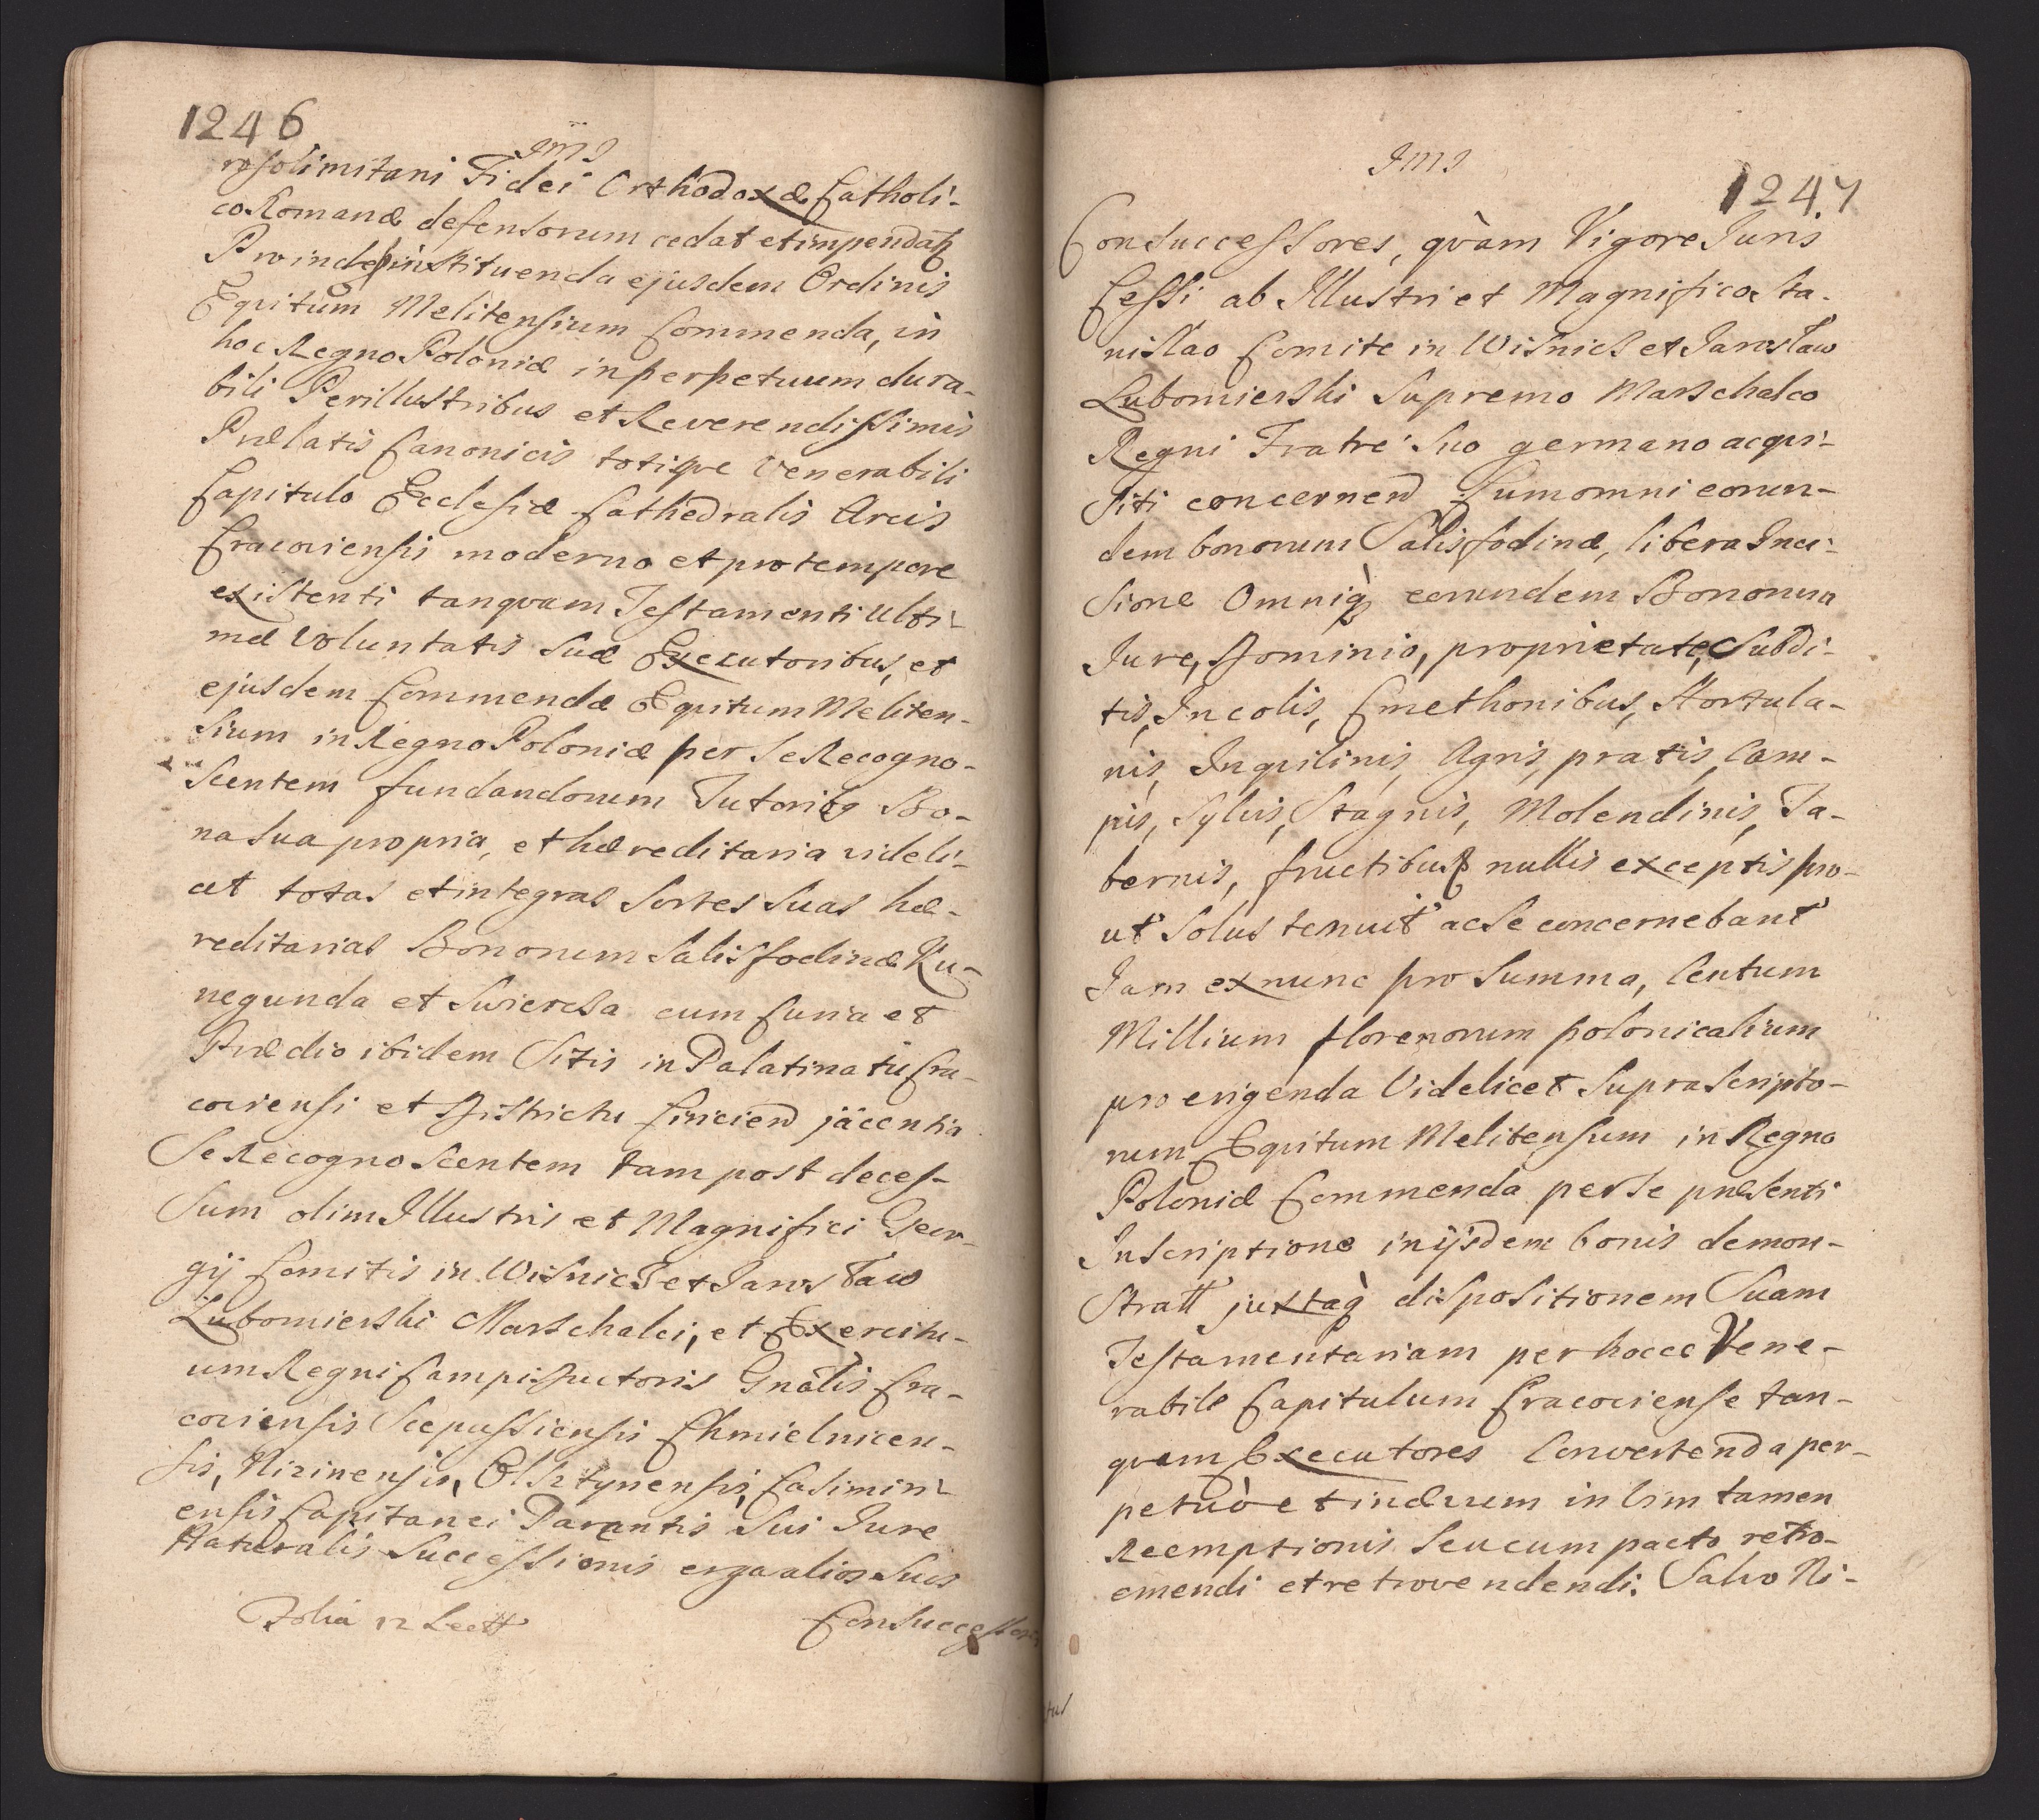 1246
JMJ
rosolimitani Fidei Orthodoxæ Catholi-
co Romanæ defensorum cedat et impendatq
Proinde instituenda ejusdem Ordinis
Eqvitum Melitensium Commenda, in
hoc Regno Poloniæ in perpetuum dura-
bili Perillustribus et Reverendissimis
Prælatis Canonicis totiqve Venerabili
Capitulo Ecclesiæ Cathedralis Arcis
Cracoviensis moderno et pro tempore
existenti tanqvam Testamenti Ulti-
mæ Voluntatis Suæ Executoribus, et
ejusdem Commendæ Eqvitum Meliten-
sium in Regno Poloniæ per Se Recogno-
Scentem fundandorum Tutoribq Bo-
na Sua propria, et hæreditaria videli-
cet totas et integras Sortes Suas hæ-
reditarias Bonorum Salisfodinæ Ku-
negunda et Swiercza cum Curia et
Prædio ibidem Sitis in Palatinatu Cra-
coviensi et Districtu Szcirien jacentia
Se Recognoscentem tam post deces-
Sum olim Illustris et Magnifici Geor-
gij Comitis in Wisnicz et Jarosław
Lubomierski Marschalci, et Exercitu-
um Regni Campi Ductoris Gnalis Cra-
coviensis Scepussiensis Chmielnicen-
sis, Nizinensis, Olsztynensis, Casimiri-
ensis Capitanei Parentis Sui Jure
Naturalis Successionis erga alios Suos
Folia 12 Lectt
Consuccessores
JMJ
1247
Consuccessores, qvàm Vigore Juris
Cessi ab Illustri et Magnifico Sta-
nislao Comite in Wisnicz et Jarosław
Lubomierski Supremo Marschalco
Regni Fratre Suo germano acqvi-
siti concernen Cum omni eorun-
dem bonorum Salisfodinæ, libera Inci-
sione Omniq eorundem Bonorum
Jure, Dominio, proprietate, Subdi-
tis, Incolis, Cmethonibus, Hortula-
nis, Inqvilinis, Agris, pratis, Cam-
pis, Sylvis, Stagnis, Molendinis, Ta-
bernis, fructibusq nullis exceptis pro-
ut Solus tenuit ac Se concernebant
Jam ex nunc pro Summa, Centum
Millium florenorum polonicalium
pro erigenda Videlicet Suprascripto-
rum Eqvitum Melitensum in Regno
Poloniæ Commenda per Se præsenti
Inscriptione in ijsdem bonis demon-
Stratt juxtaq dispositionem Suam
Testamentariam per hocce Vene-
rabile Capitulum Cracoviense tan-
qvam Executores Convertenda per-
petuò et in ævum in Vim tamen
Reemptionis Seu cum pacto retro-
emendi et retrovendendi. Salvo Ni-